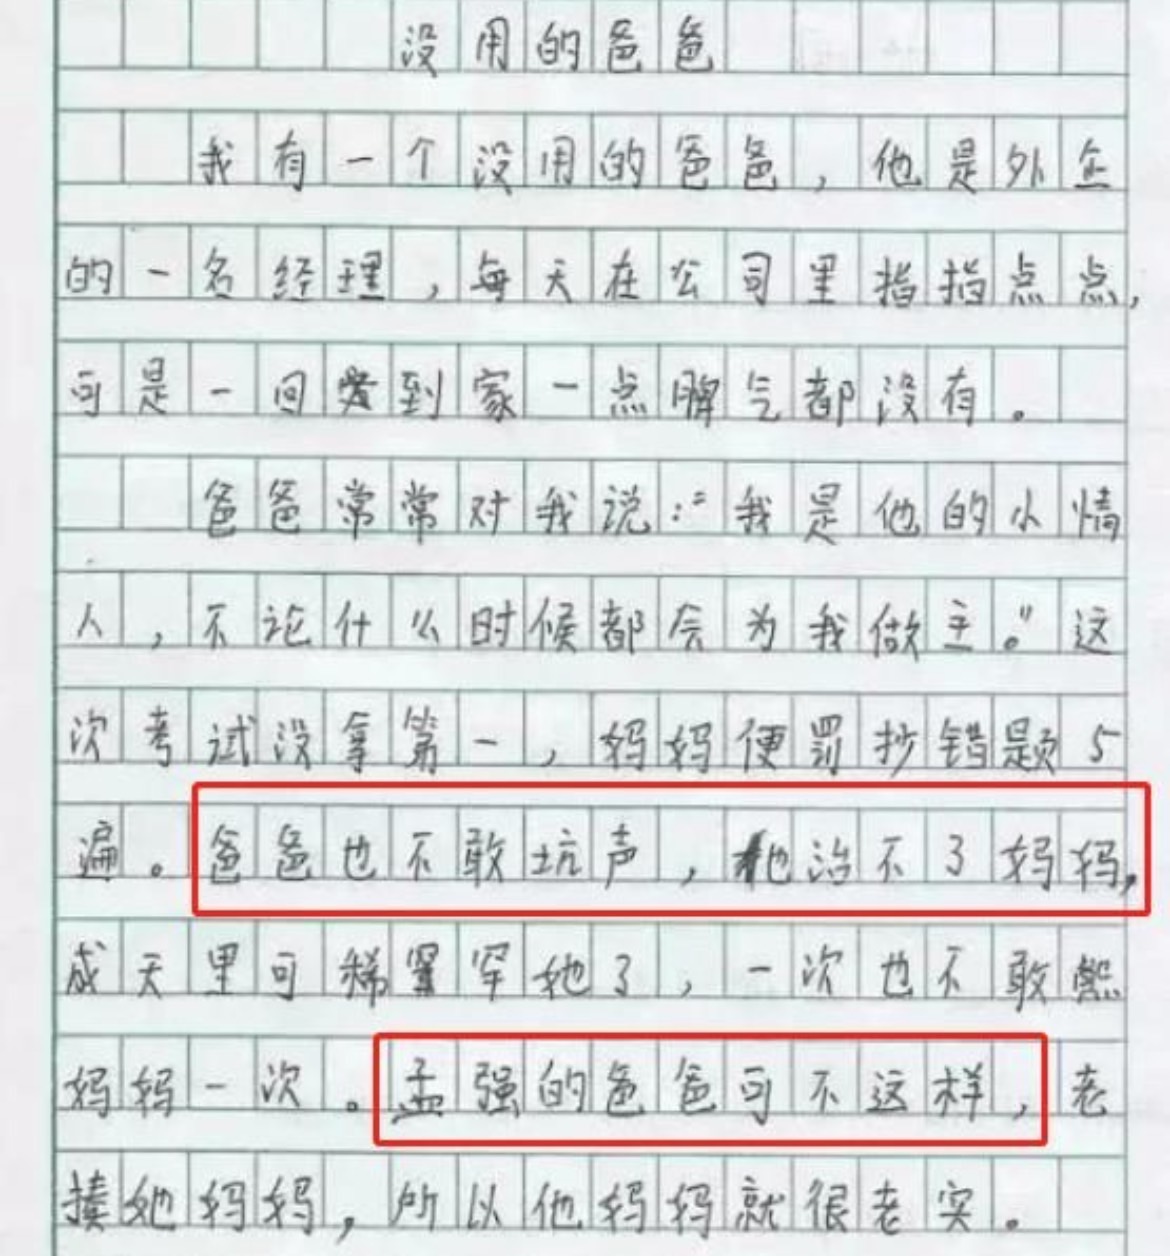 没用的爸爸
我有一个没用的爸爸，他是外企
的一名经理，每天在公司里指指点点，
可是一回到家一点脾气都没有。
爸爸常常对我说：“我是他的小情
人，不论什么时候都会为我做主。”这
次考试没拿第一，妈妈便罚抄错题5
遍。爸爸也不敢坑声，他治不了妈妈，
成天里可稀罕她了，一次也不敢熊
妈妈一次。孟强的爸爸可不这样，老
揍她妈妈，所以他妈妈就很老实。